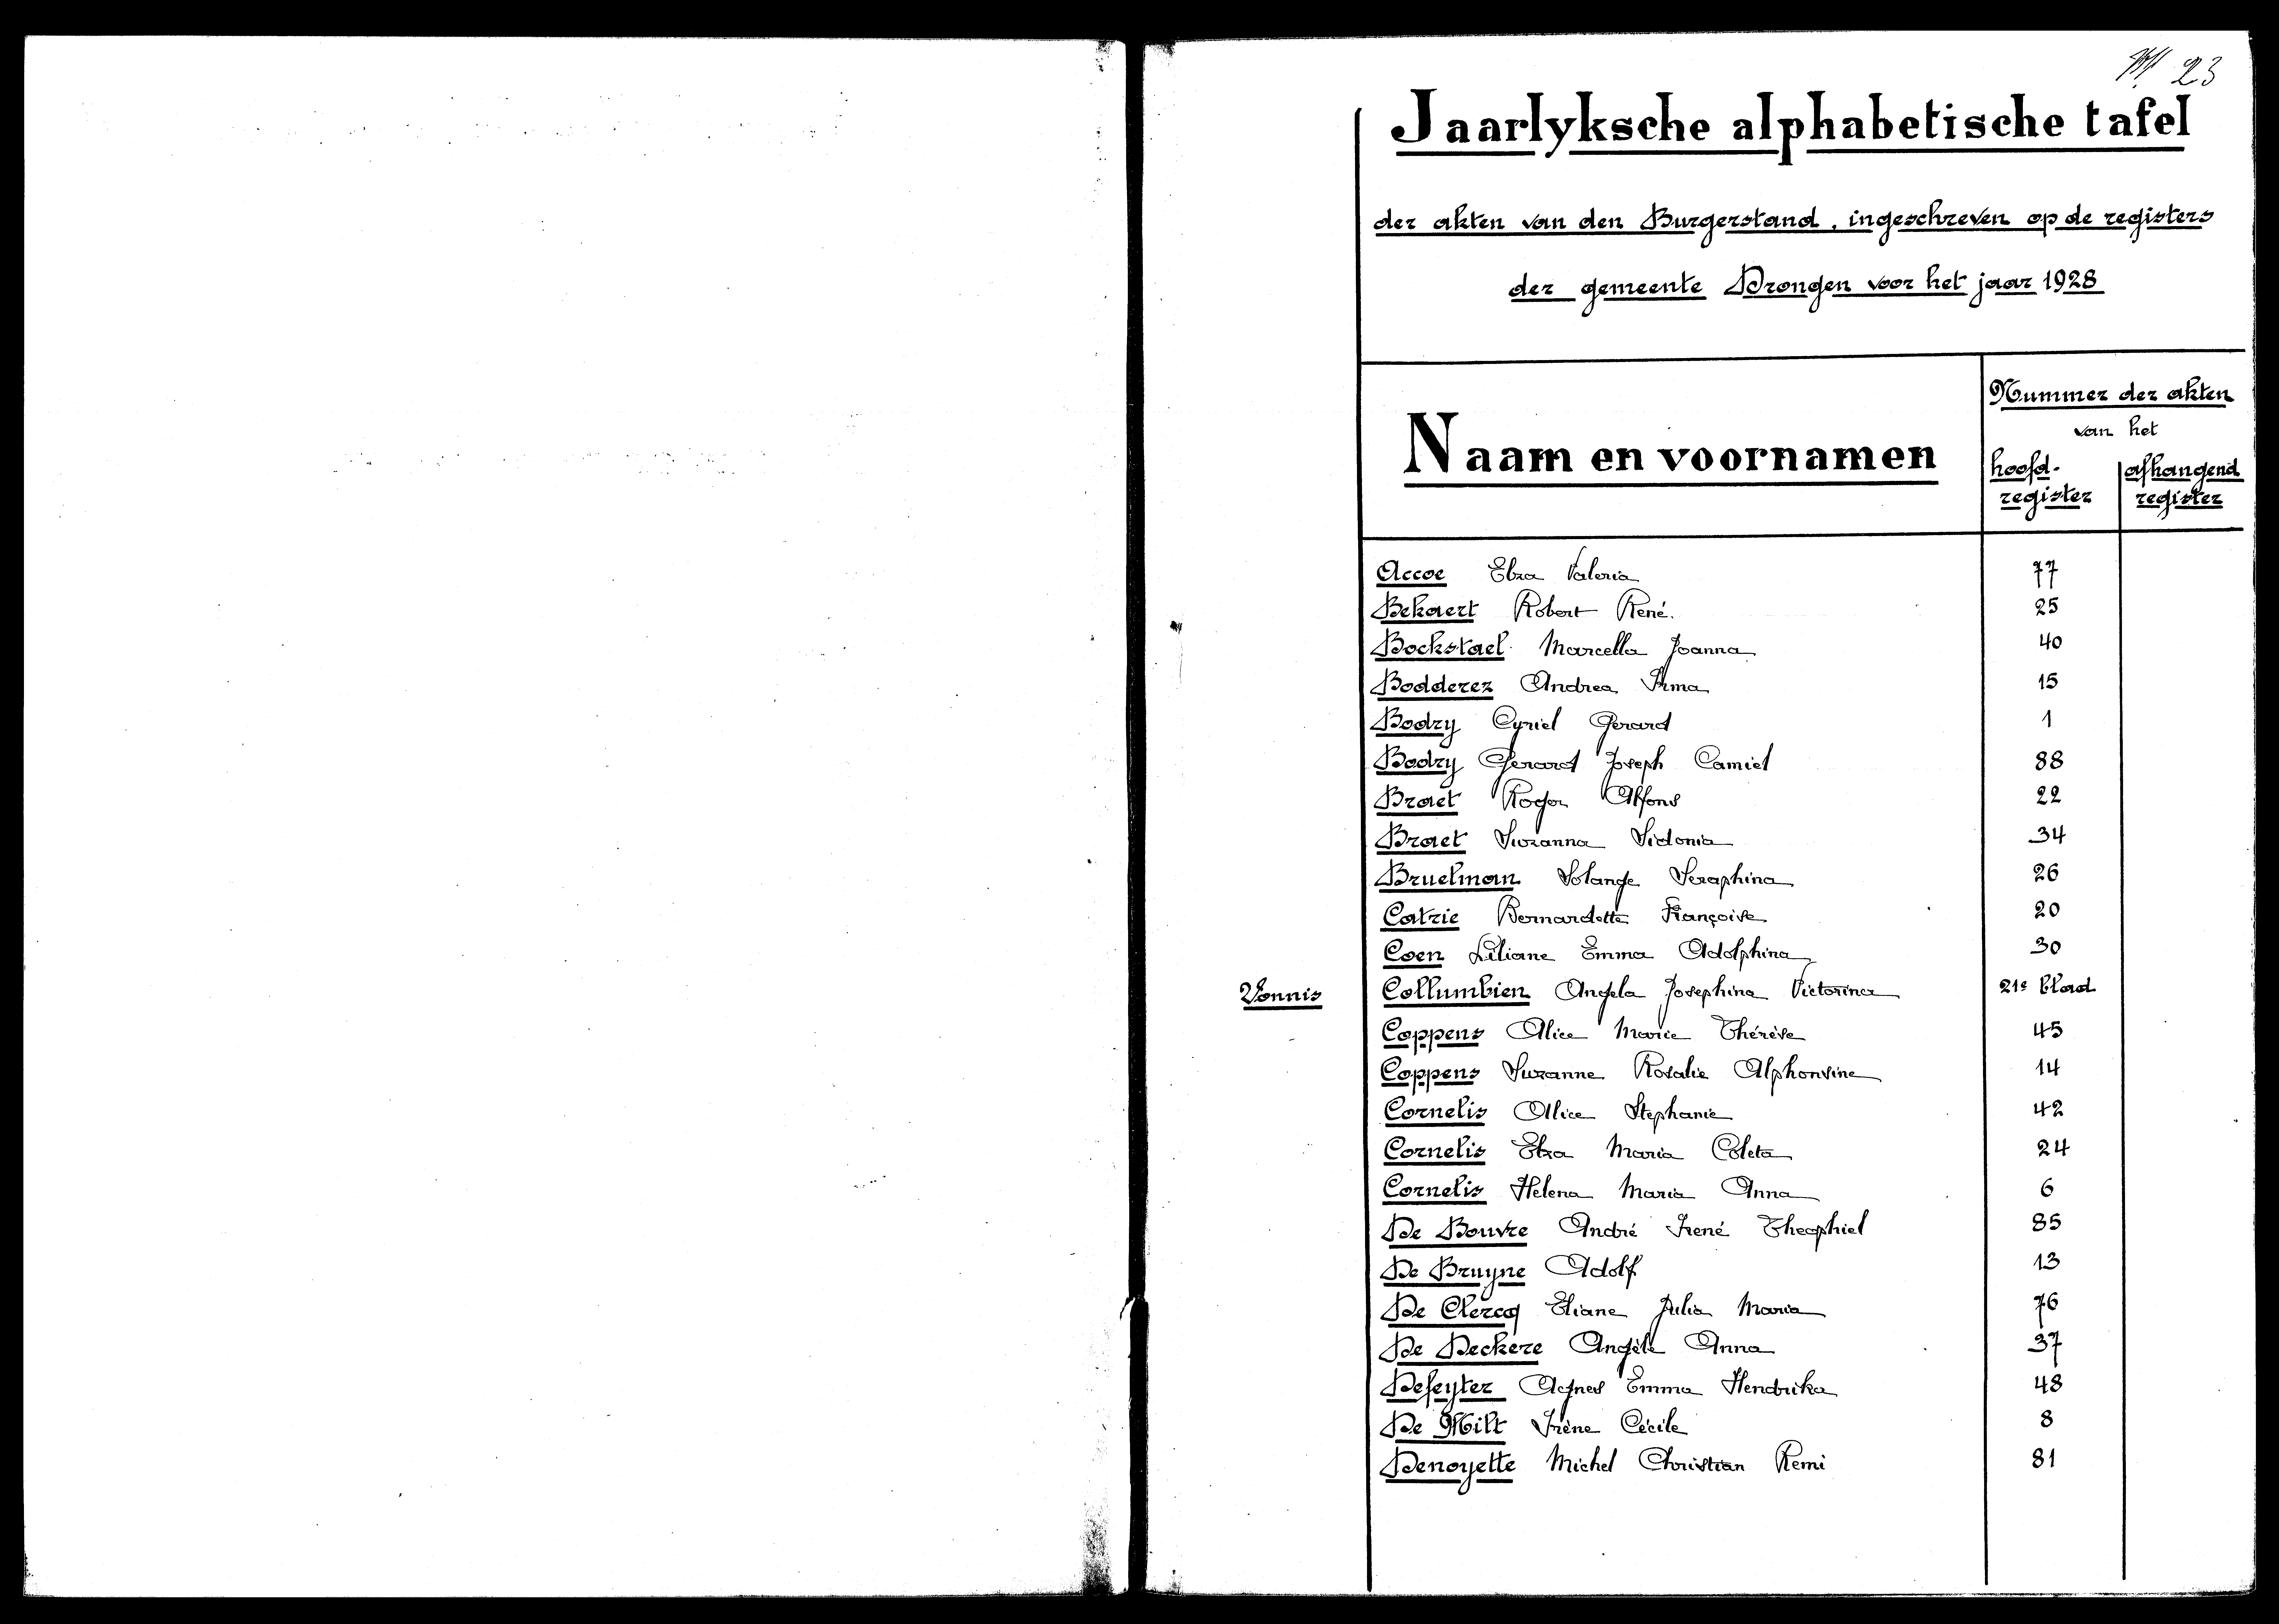 23
Jaarlyksche alphabetische tafel
der akten van den Burgerstand, ingeschreven op de registers
der gemeente Drongen voor het jaar 1928
Naam en voornamen
Nummer der akten
van het
hoofd- afhangend
register register
Accoe Elza Valeria 77
Bekaert Robert René. 25
Bockstael Marcella Joanna 40
Bodderez Andrea Irma 15
Bodry Cyriel Gerard 1
Bodry Gerard Joseph Camiel 88
Braet Roger Alfons 22
Braet Suzanna Sidonia 34
Bruelman Solange Seraphina 26
Catrie Bernardette Françoise 20
Coen Liliane Emma Adolphina 30
Vonnis Collumbien Angela Josephina Victorina 21e blad
Coppens Alice Marie Thérèse 45
Coppens Suzanne Rosalie Alphonsine 14
Cornelis Alice Stephanie 42
Cornelis Elza Maria Coleta 24
Cornelis Helena Maria Anna 6
De Bouvre André Irené Theophiel 85
De Bruyne Adolf 13
De Clercq Eliane Julia Maria 76
De Deckere Angèle Anna 37
Defeyter Agnes Emma Hendrika 48
De Milt Irène Cécile 8
Denoyette Michel Christian Remi 81